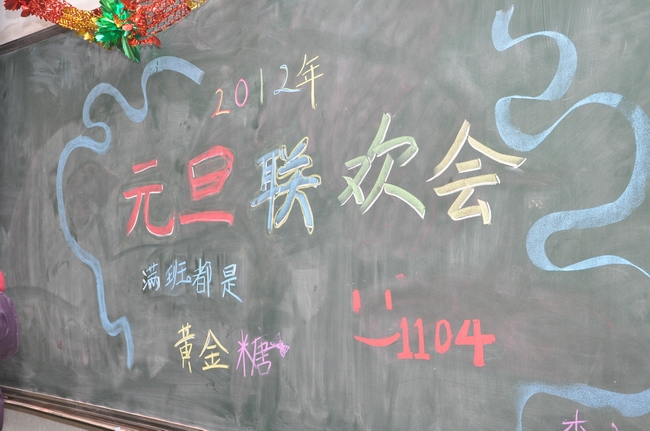 2012年
元旦联欢会
满班都是
黄金糖
1104